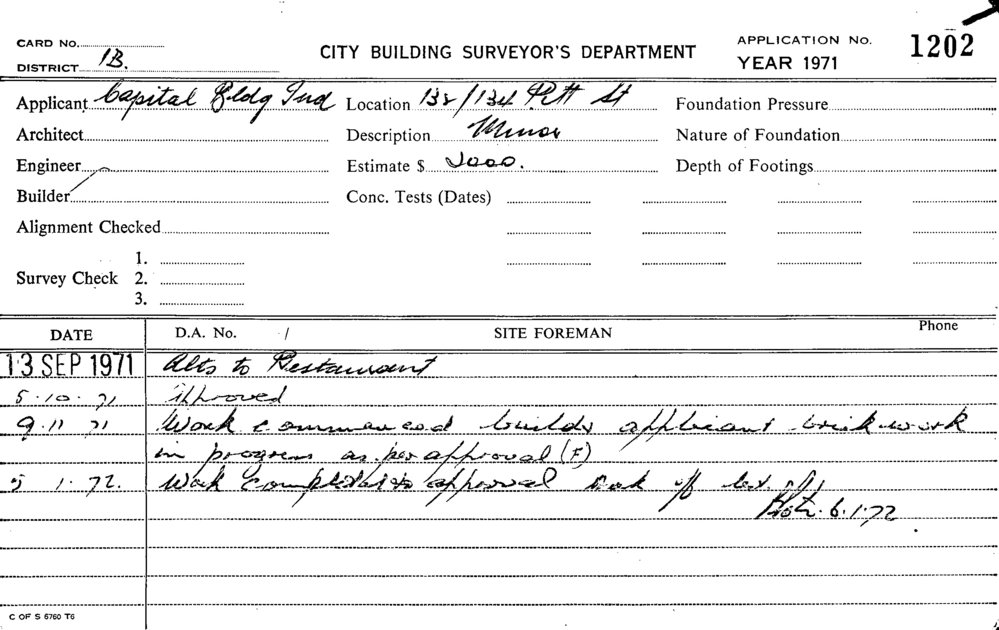 CARD No.
DISTRICT 1B.
CITY BUILDING SURVEYOR'S DEPARTMENT
APPLICATION No. 1202
YEAR 1971
Applicant Capital Bldg Ind Location 132/134 Pitt St Foundation Pressure
Architect Description Minor Nature of Foundation
Engineer Estimate $ 2000. Depth of Footings
Builder Conc. Tests (Dates)
Alignment Checked
Survey Check 1.
2.
3.
DATE D.A. No. / SITE FOREMAN Phone
13 SEP 1971 Alts to Restaurant
5.10.71 Approved
9.11 71 Work commenced builder applicant brick work
in progress as per approval (F)
5 1.72. Work completed approval
6.1.72
C OF S 6760 T6